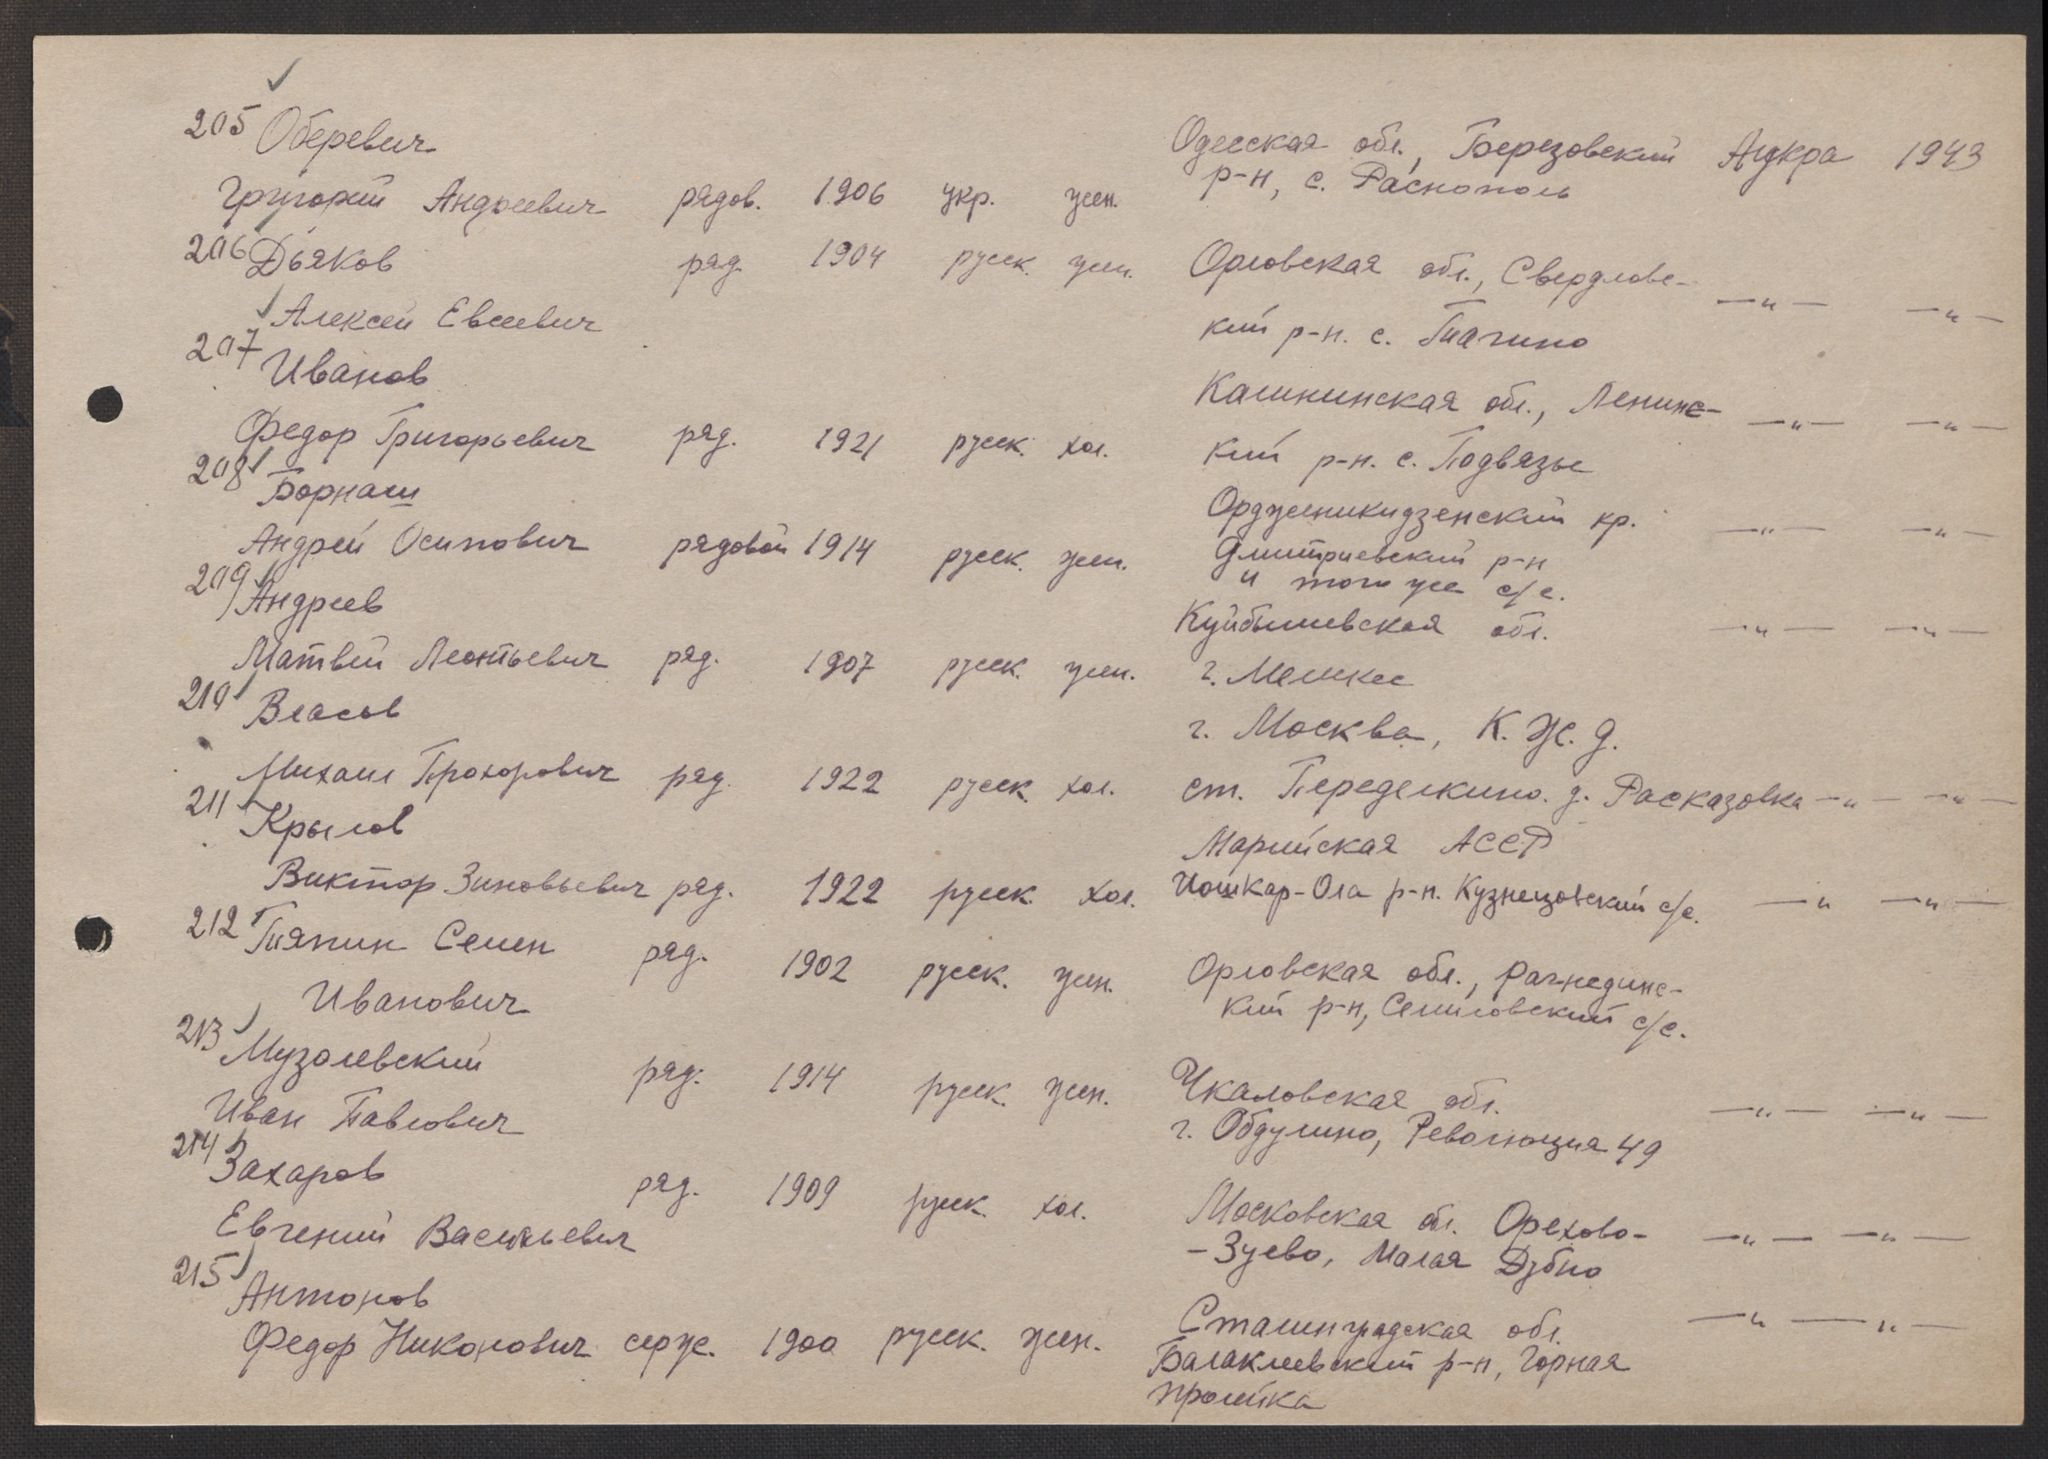 205 Оберевич
Григорий Андреевич рядов. 1906 укр. жен. Одесская обл., Березовский р-н, с. Располь Андкра 1943
206 Дьяков
Алексей Евсеевич ряд. 1904 русск. жен. Орловская обл., Свердловс-
кий р-н. с. Тагино —"— —"—
207 Иванов
Федор Григорьевич ряд. 1921 русск. хол. Калининская обл., Ленинс-
кий р-н. с. Подвязье —"— —"—
208 Борнаш
Андрей Осипович рядовой 1914 русск. жен. Орджоникидзенский кр.
Дмитриевский р-н
и того же с/с. —"— —"—
209 Андреев
Матвей Леонтьевич ряд. 1907 русск. жен. Куйбышевская обл.
г. Мелекес —"— —"—
210 Власов
Михаил Прохорович ряд. 1922 русск. хол. г. Москва, К. Ж. Д.
ст. Переделкино. д. Расказовка —"— —"—
211 Крылов
Виктор Зиновьевич ряд. 1922 русск. хол. Марийская АССР
Йошкар-Ола р-н. Кузнецовский с/с. —"— —"—
212 Тяпин Семен
Иванович ряд. 1902 русск. жен. Орловская обл., Рагнединс-
кий р-н, Семиловский с/с.
213 Музолевский
Иван Павлович ряд. 1914 русск. жен. Чкаловская обл.
г. Обдулино, Революция 49 —"— —"—
214 Захаров
Евгений Васильевич ряд. 1909 русск. хол. Московская обл. Орехово-
-Зуево, Малая Дубно —"— —"—
215 Антонов
Федор Никонович серж. 1900 русск. жен. Сталинградская обл.
Балаклеевский р-н, Горная
пролейка —"— —"—